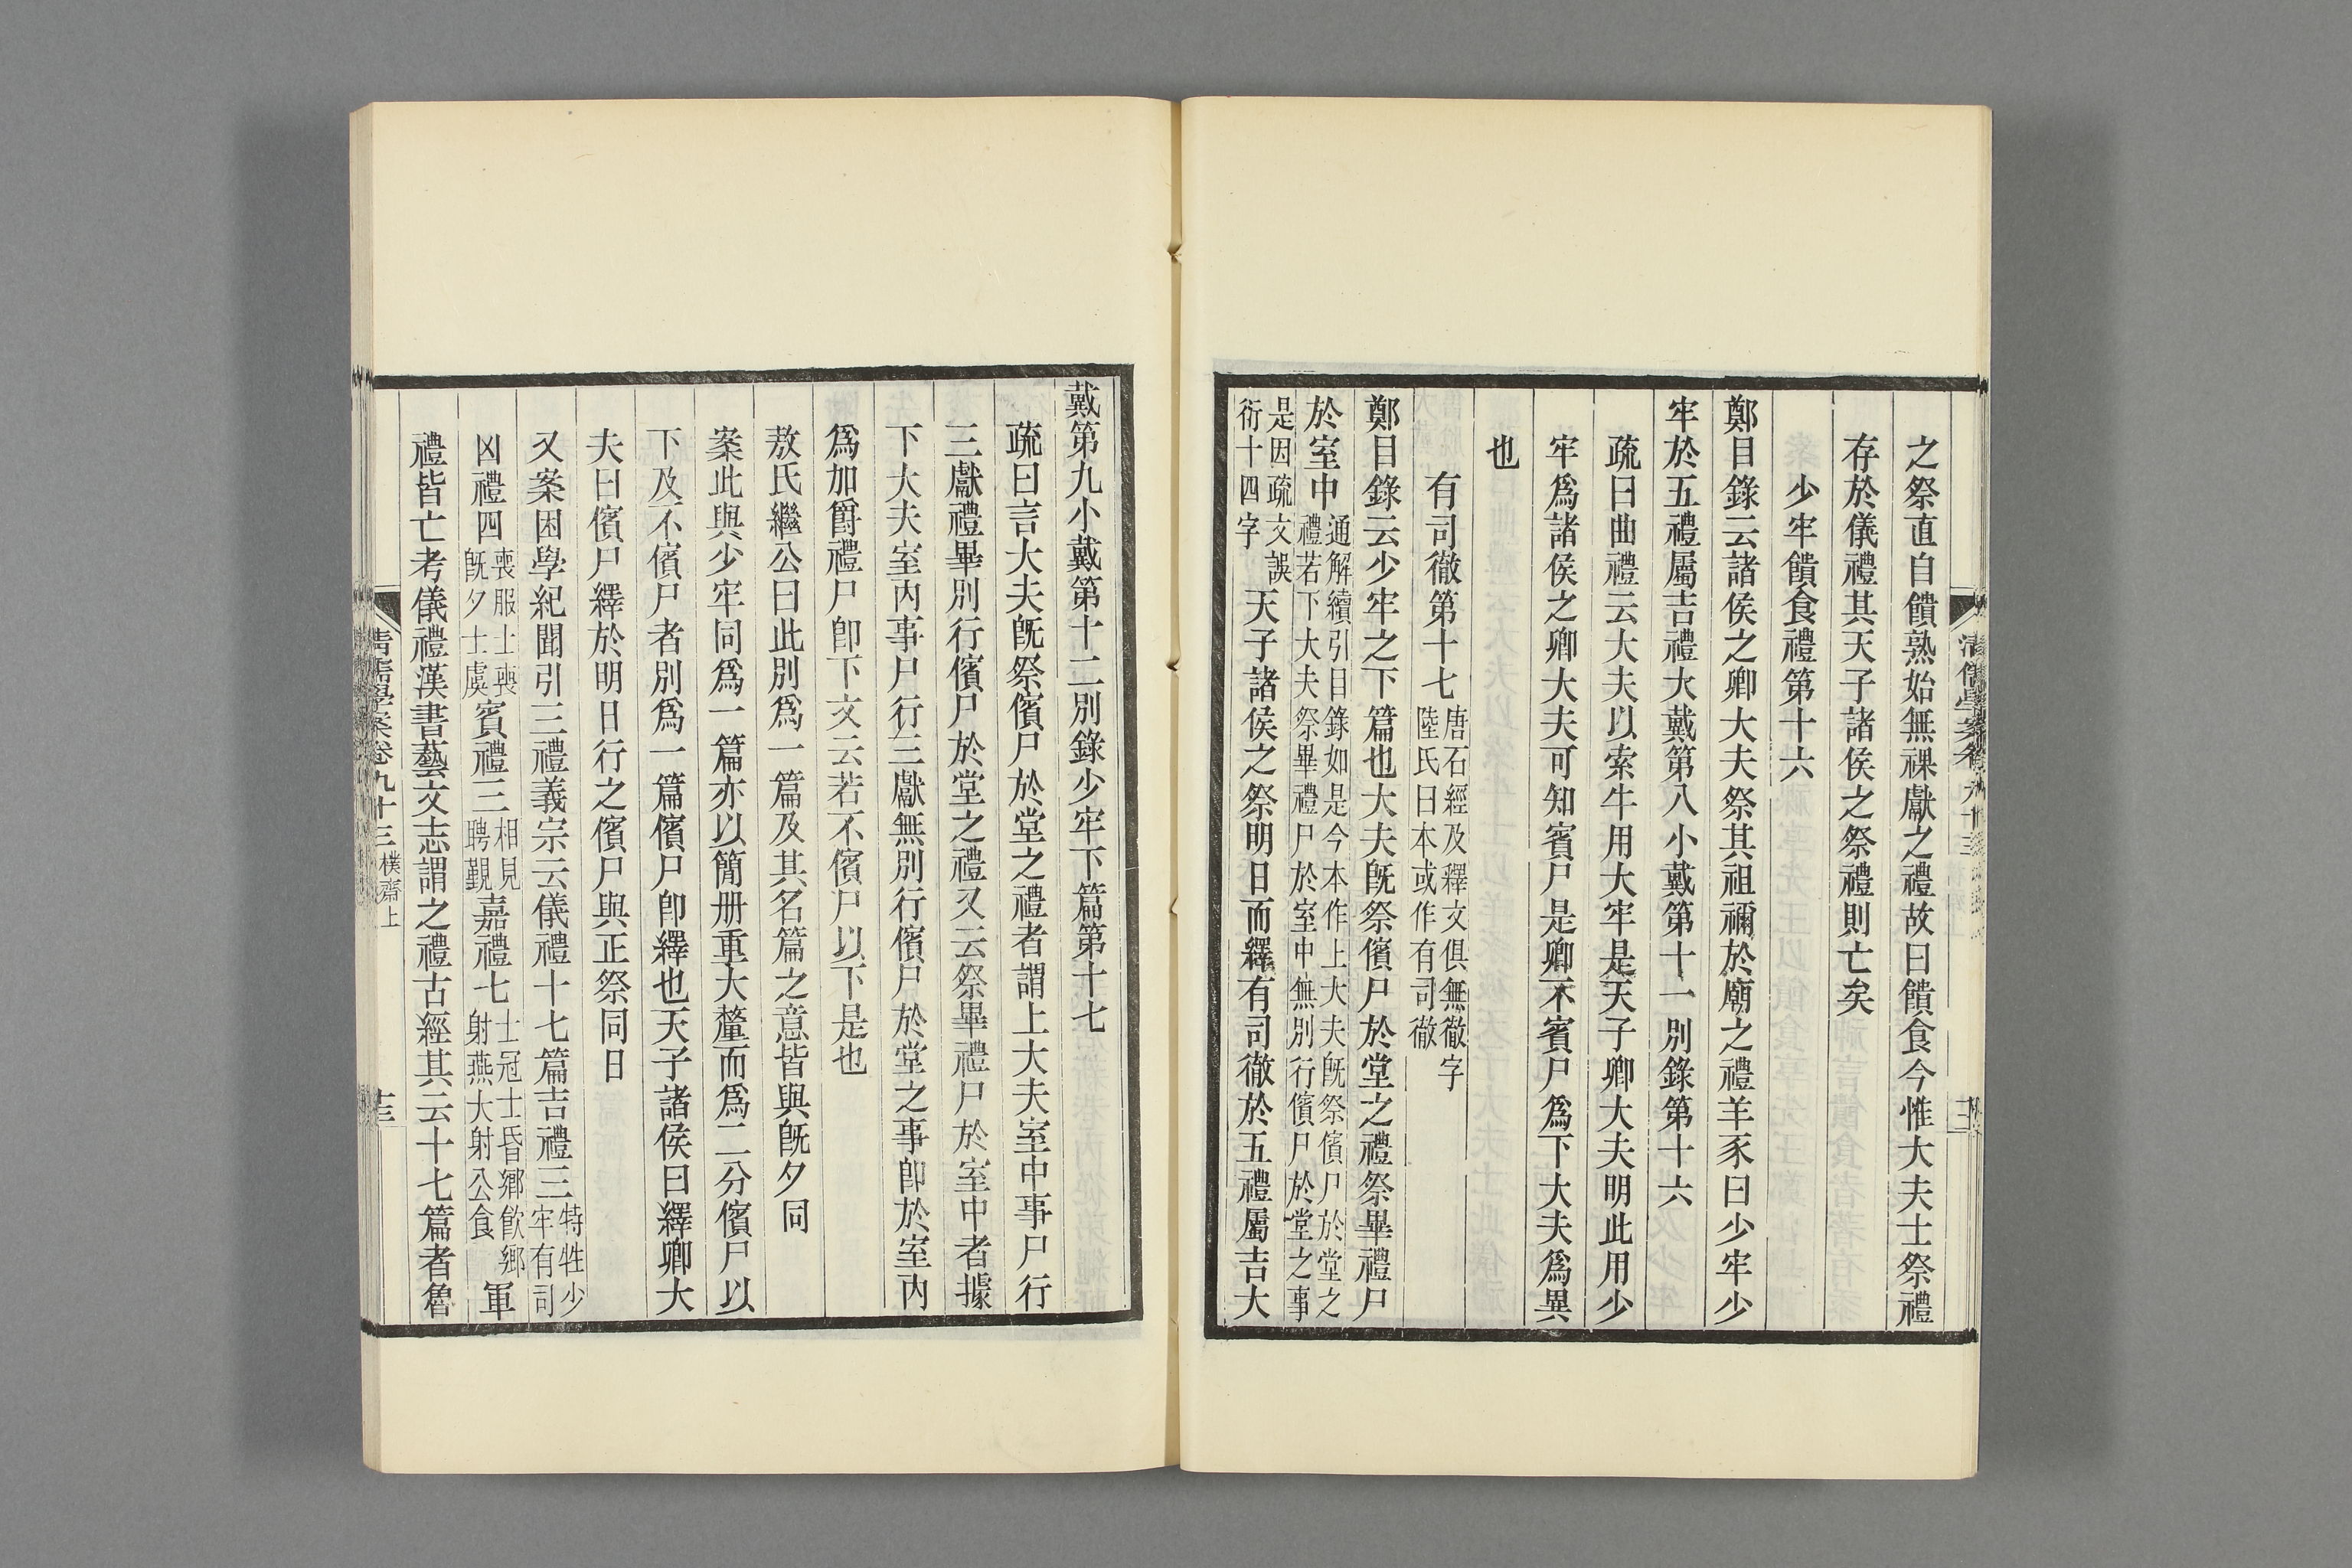 之祭直自饋熟始無祼獻之禮故曰饋食今惟大夫士祭禮
存於儀禮其天子諸侯之祭禮則亡矣
少牢饋食禮第十六
鄭目錄云諸侯之卿大夫祭其祖禰於廟之禮羊豕曰少牢少
牢於五禮屬吉禮大戴第八小戴第十一別錄第十六
疏曰曲禮云大夫以索牛用大牢是天子卿大夫明此用少
牢爲諸侯之卿大夫可知賓尸是卿不賓尸爲下大夫爲異
也
有司徹第十七唐石經及釋文俱無徹字陸氏曰本或作有司徹
鄭目錄云少牢之下篇也大夫旣祭儐尸於堂之禮祭畢禮尸
於室中通解續引目錄如是今本作上大夫旣祭儐尸於堂之禮若下大夫祭畢禮尸於室中無別行儐尸於堂之事
是因疏文誤衍十四字天子諸侯之祭明日而繹有司徹於五禮屬吉大
戴第九小戴第十二別錄少牢下篇第十七
疏曰言大夫旣祭儐尸於堂之禮者謂上大夫室中事尸行
三獻禮畢別行儐尸於堂之禮又云祭畢禮尸於室中者據
下大夫室內事尸行三獻無別行儐尸於堂之事卽於室內
爲加爵禮尸卽下文云若不儐尸以下是也
敖氏繼公曰此別爲一篇及其名篇之意皆與旣夕同
案此與少牢同爲一篇亦以簡册重大釐而爲二分儐尸以
下及不儐尸者別爲一篇儐尸卽繹也天子諸侯曰繹卿大
夫曰儐尸繹於明日行之儐尸與正祭同日
又案困學紀聞引三禮義宗云儀禮十七篇吉禮三特牲少牢有司
凶禮四喪服士喪旣夕士虞賓禮三相見聘覲嘉禮七士冠士昏鄉飮鄉射燕大射公食軍
禮皆亡考儀禮漢書藝文志謂之禮古經其云十七篇者魯
清儒學案卷九十三樸齋上
十三